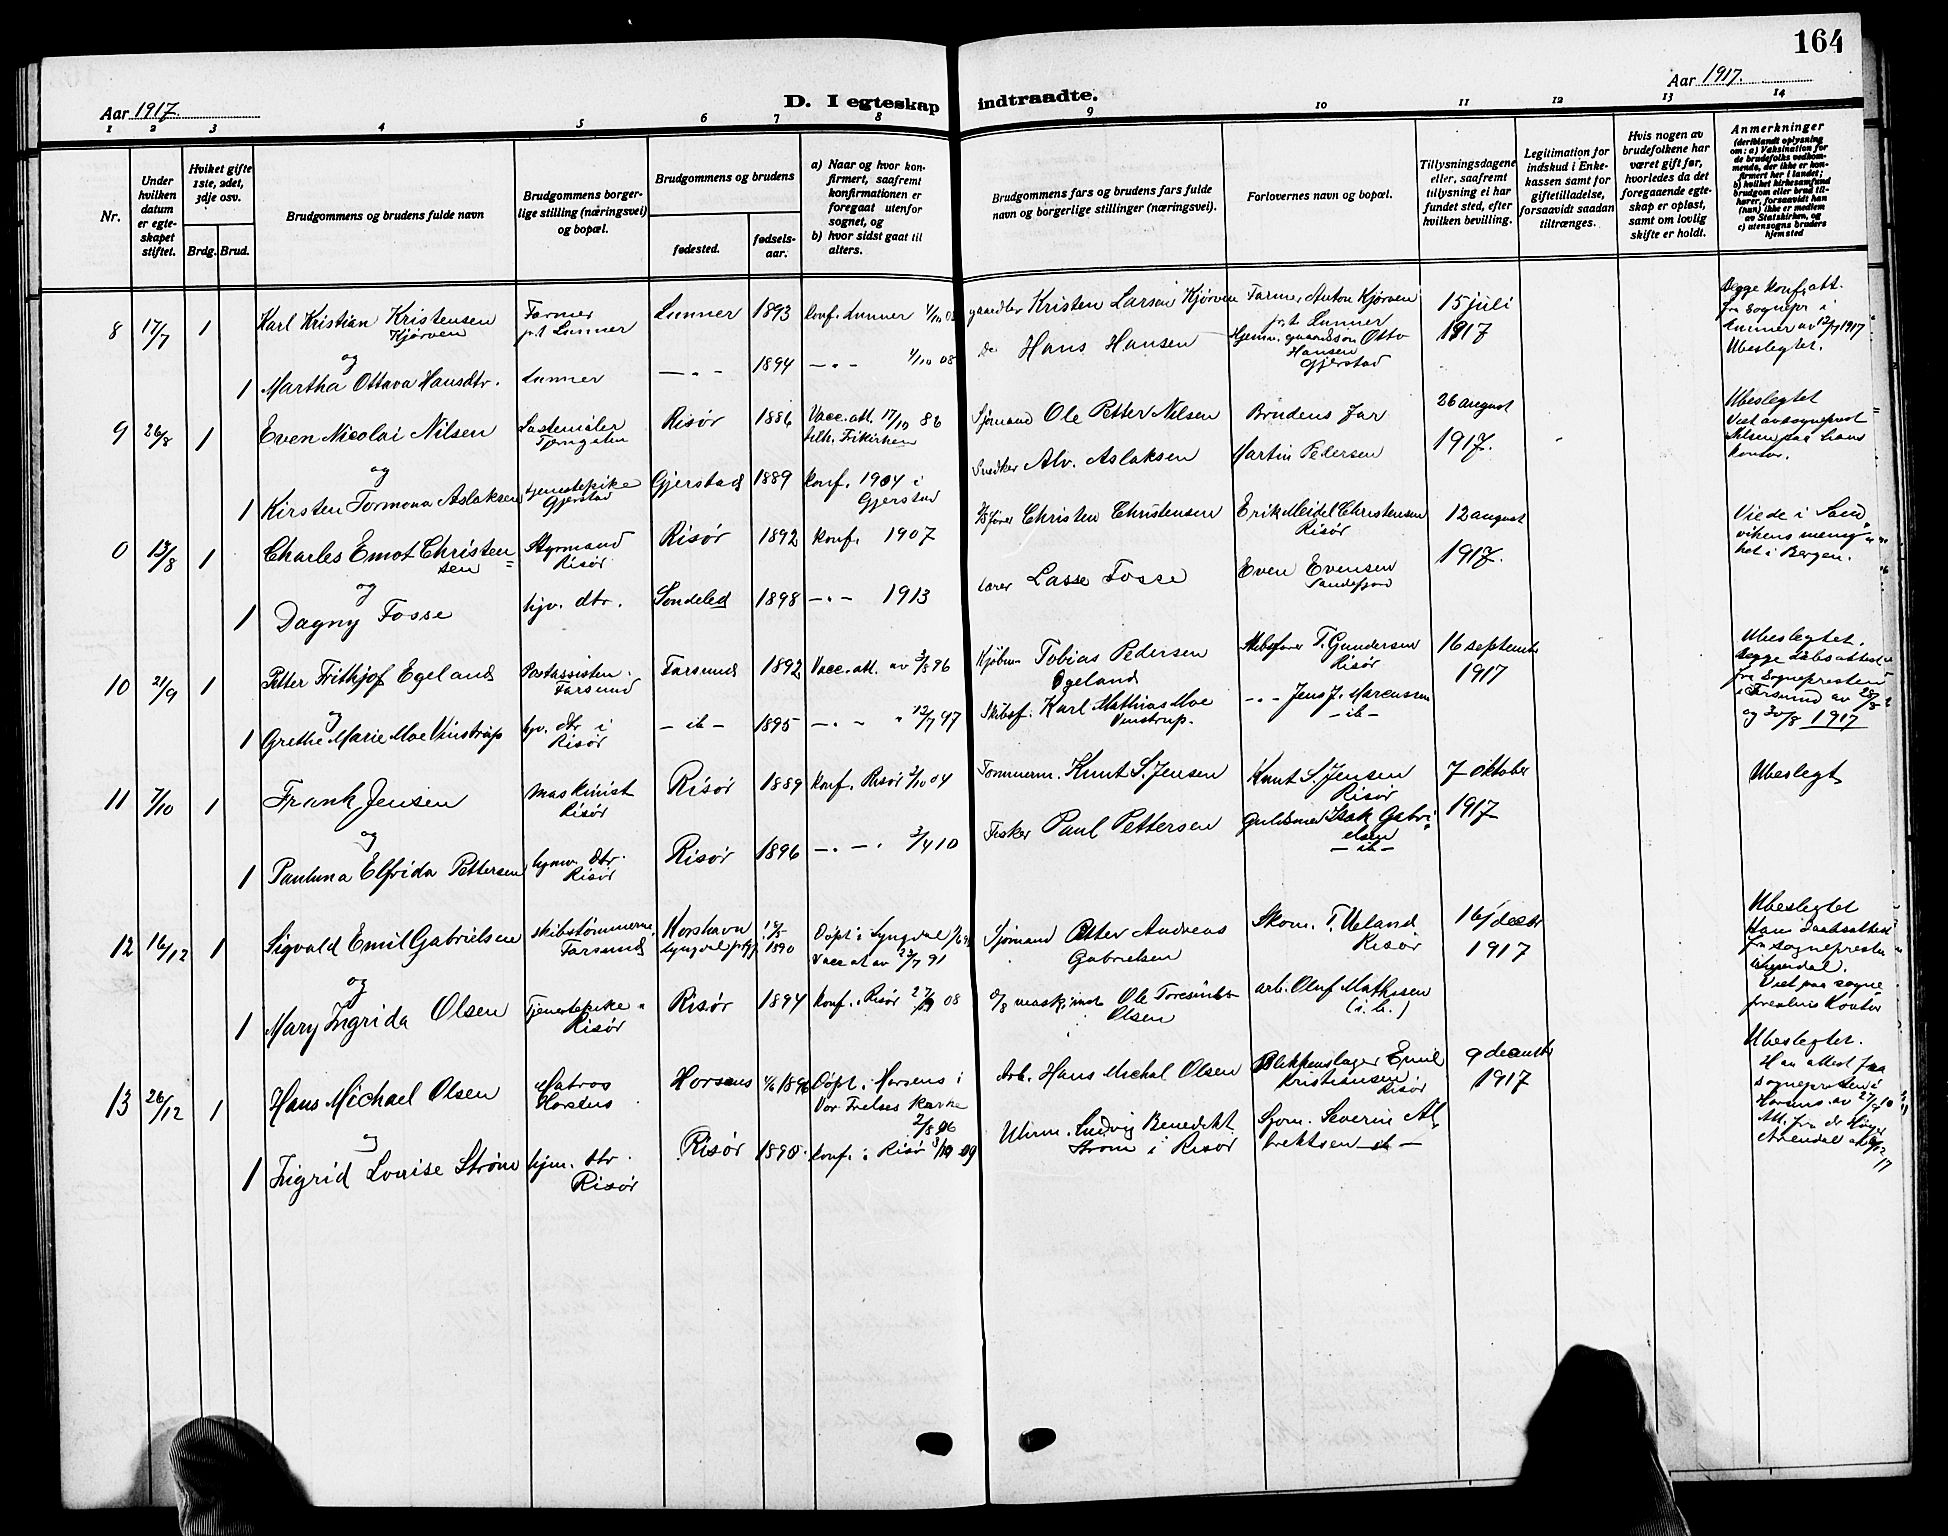 164
Aar 1917.
D. I egteskap indtraadte.
Aar 1917.
1 2 3 4 5 6 7 8 9 10 11 12 13 14
Nr.
Under hvilken datum er egteskapet stiftet.
Hvilket gifte 1ste, 2det, 3dje osv.
Brdg. Brud.
Brudgommens og brudens fulde navn
Brudgommens borgerlige stilling (næringsvei) og bopæl.
Brudgommens og brudens
fødested.
fødselsaar.
a) Naar og hvor konfirmert, saafremt konfirmationen er foregaat utenfor sognet, og
b) hvor sidst gaat til alters.
Brudgommens fars og brudens fars fulde navn og borgerlige stillinger (næringsvei).
Forlovernes navn og bopæl.
Tillysningsdagene eller, saafremt tillysning ei har fundet sted, efter hvilken bevilling.
Legitimation for indskud i Enkekassen samt for giftetilladelse, forsaavidt saadan tiltrænges.
Hvis nogen av brudefolkene har været gift før, hvorledes da det foregaaende egteskap er opløst, samt om lovlig skifte er holdt.
Anmerkninger (deriblandt oplysning om: a) Vaksination for de brudefolks vedkommende, der ikke er konfirmert her i landet; b) hvilket kirkesamfund brudgom eller brud tilhører, forsaavidt han (hun) ikke er medlem av Statskirken, og c) utensogns bruders hjemsted
8 17/7 1 Karl Kristian Kristensen Kjørven Farmer p.t Lunner Lunner 1893 konf. Lunner Kristen Larsen Kjørven Farmer Anton Kjørven p.t. Lunner 15 juli 1917 Begge konf. att. fra sognepr i Lunner av 12/7 1917 Ubeslegtet.
og
1 Martha Ottava Hansdtr. Lunner — " — 1894 — " — 1/10 08 Do Hans Hansen Otto Hansen Gjerstad
9 26/8 1 Even Nicolai Nilsen Lastemåler Risør 1886 Vacc. att. 17/10 86 tilh. Frikirken Sjømand Ole Petter Nilsen Brudens far 26 august 1917. Ubeslegtet
og
1 Kirsten Tormona Aslaksen tjenestepike Gjerstad Gjerstad 1889 konf. 1904 i Gjerstad Snedker Alv. Aslaksen Martin Pedersen
0 13/8 1 Charles Emot Christensen Styrmand Risør Risør 1892 konf. 1907 Christen Christensen Erik Meidel Christensen Risør 12 august 1917. Viede i Sandvikens menighet i Bergen.
og
1 Dagny Fosse hjv. dtr. Søndeled 1898 — " — 1913 lærer Lasse Fosse Even Evensen Sandefjord
10 21/9 1 Petter Frithjof Egeland Postassisten. Farsund Farsund 1892 Vacc. att. av 3/8 96 Kjøbm Tobias Pedersen Egeland Skibsfører T. Gundersen Risør 16 septembr 1917 Ubeslegtet. Begge daabsattest fra sognepresten i Farsund av 28/8 og 30/8 1917
og
1 Grethe Marie Moe Vinstrup hjv. dtr i Risør — ib — 1895 — " — " 12/7 97 Skibsf. Karl Mathias Moe Vinstrup. — " — Jens J. Marcussen — ib —
11 7/10 1 Frank Jensen maskinist Risør Risør 1889 konf. Risør 2/10 04 Tømmerm. Knut S. Jensen Knut S. Jensen Risør 7 oktober 1917 Ubeslegt
og
1 Paulina Elfrida Pettersen hjmv. dtr. Risør Risør 1896 — " — " 3/4 10 Fisker Paul Pettersen Guldsmed Isak Gabrielsen — ib —
12 16/12 1 Sigvald Emil Gabrielsen skibstømmerm. Farsund Korshavn Lyngdal prgj 18/5 1890 Døpt i Lyngdal Vacc at av 23/7 91 Sjømand Petter Andreas Gabrielsen Skom. T. Ueland Risør 16/decbr 1917 Ubeslegtet Hans Daabsattest fra sognepresten i Lyngdal. Viet paa sogneprestens Kontor
og
1 Mary Ingrida Olsen Tjenestepike Risør Risør 1894 konf. i Risør 08 maskinist Ole Olsen arb. Oluf Mathisen (i. b.)
13 26/12 1 Hans Michael Olsen Matros Horsens Horsens 1896 Døpt i Horsens i Vor Frelses Kirke 2/8 96 Arb. Hans Michal Olsen Blikkenslager Emil Kristiansen Risør 9 decembr 1917 Ubeslegtet. Han attest fra sognepresten i Horsens
og
1 Ingrid Louise Strøm hjm. dtr. Risør Risør 1895 konf. i Risør 09 Urm. Ludvig Benedikt Strøm i Risør Severin Albrektsen — ib —